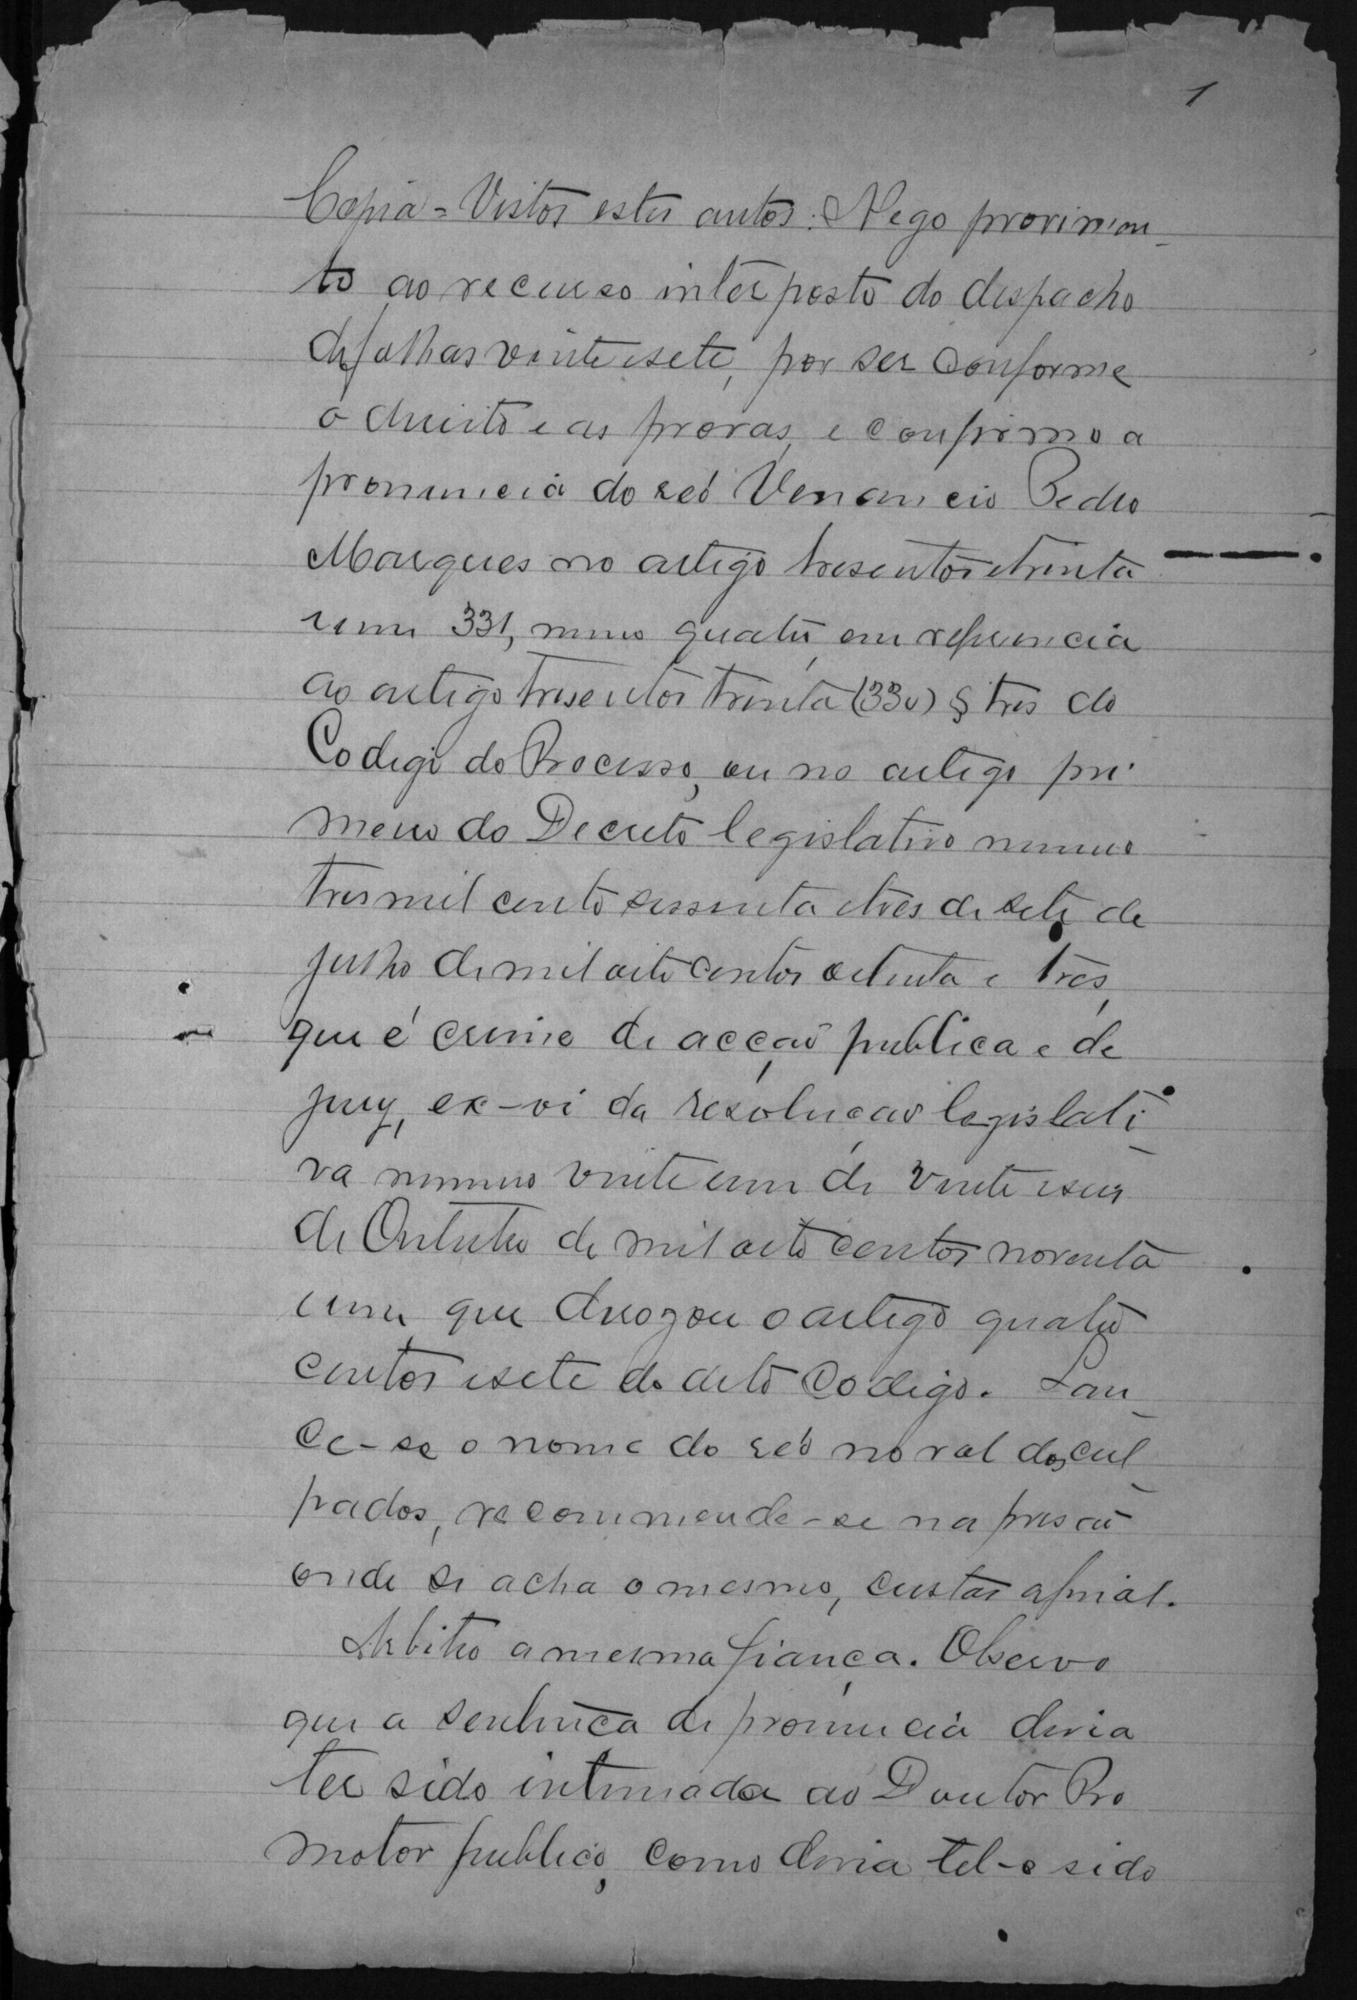 1
Copia = Vistos estes autos. Nego provimen-
to ao recurso interposto do despacho
de folhas vinte e sete, por ser conforme
o direito e as provas, e confirmo a
pronuncia do reó Venancio Pedro
Marques no artigo tresentos e trinta
e um 331, numero quatro, em referencia
ao artigo tresentos trinta (330) § tres do
Codigo do Processo, ou no artigo pri-
meiro do Decreto legislativo numero
tres mil cento sessenta e tres de sete de
julho de mil oito centos oitenta e tres,
que é crime de acção publica e de
jury, ex-vi da resolução legislati-
va numero vinte e um de vinte e seis
de Outubro de mil oito centos noventa
e um que derogou o artigo quatro
centos e sete do dito Codigo. Lan-
ce-se o nome do reó no rol dos cul-
pados, recommende-se na prisão
onde se acha o mesmo, custas afinal.
Arbitro a mesma fiança. Observo
que a sentença de pronuncia devia
ter sido intimada ao Doutor Pro
motor publico, como devia tel-o sido